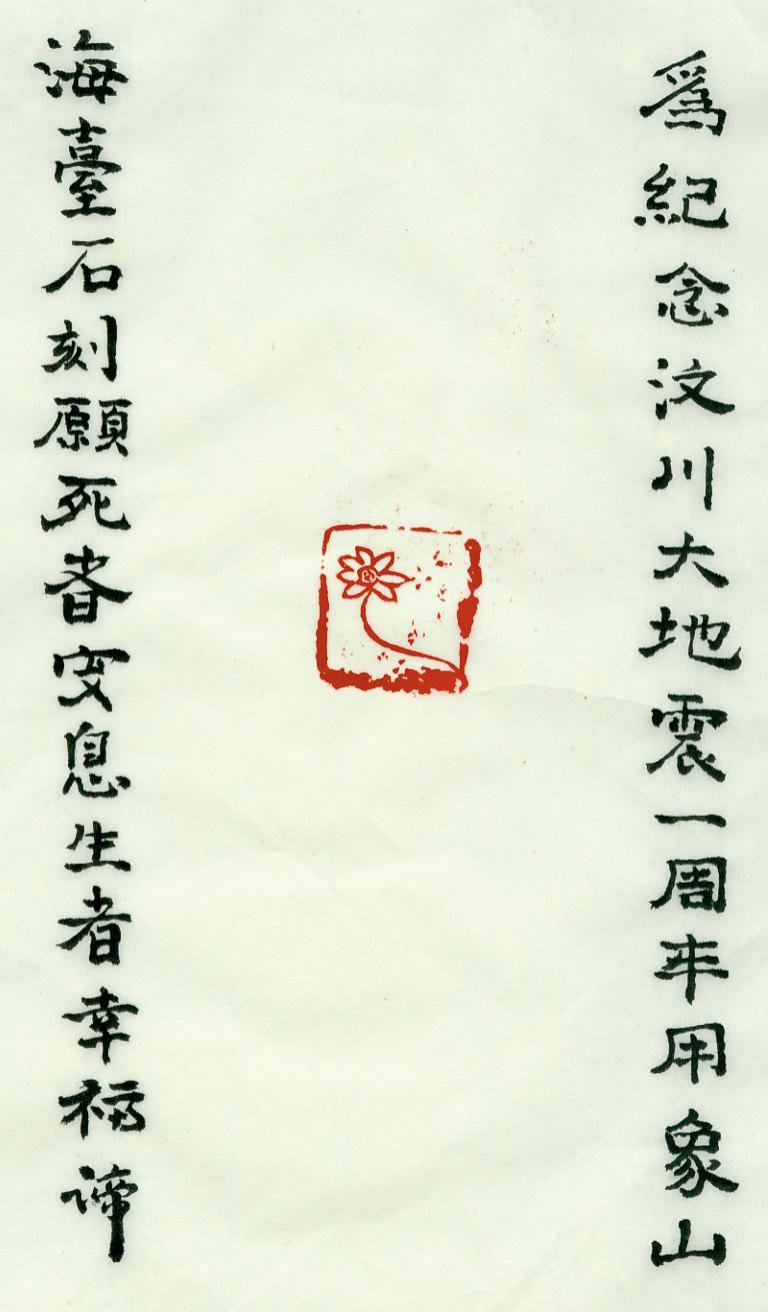 爲紀念汶川大地震一周年用象山
海臺石刻願死者安息生者幸福諦